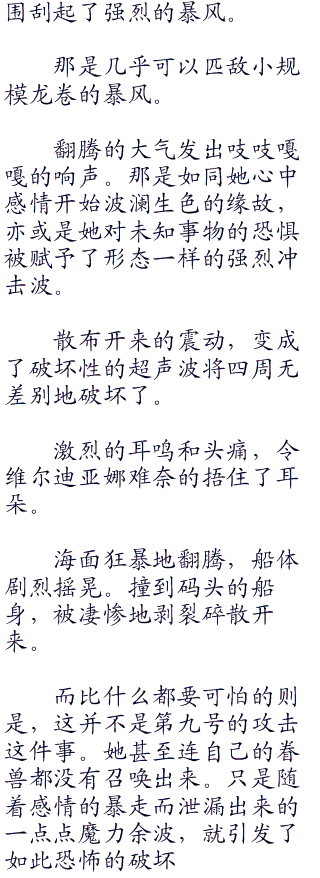 围刮起了强烈的暴风。
那是几乎可以匹敌小规
模龙卷的暴风。
翻腾的大气发出吱吱嘎
嘎的响声。那是如同她心中
感情开始波澜生色的缘故，
亦或是她对未知事物的恐惧
被赋予了形态一样的强烈冲
击波。
散布开来的震动，变成
了破坏性的超声波将四周无
差别地破坏了。
激烈的耳鸣和头痛，令
维尔迪亚娜难奈的捂住了耳
朵。
海面狂暴地翻腾，船体
剧烈摇晃。撞到码头的船
身，被凄惨地剥裂碎散开
来。
而比什么都要可怕的则
是，这并不是第九号的攻击
这件事。她甚至连自己的眷
兽都没有召唤出来。只是随
着感情的暴走而泄漏出来的
一点点魔力余波，就引发了
如此恐怖的破坏